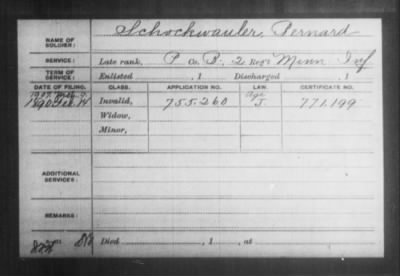 Schockwauler, Bernard
NAME OF SOLDIER:
SERVICE: Late rank, P Co. B, 2 Reg't Minn Inf
TERM OF SERVICE: Enlisted , 1 Discharged , 1
DATE OF FILING. CLASS. APPLICATION NO. LAW. CERTIFICATE NO.
1907 Age
1890 Invalid, 755.260 J 771.199
Widow,
Minor,
ADDITIONAL SERVICES:
REMARKS:
Died , 1 , at